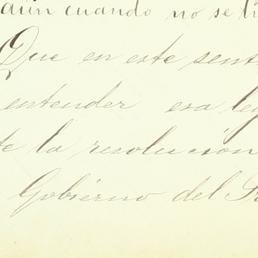 aún cuando no se
Que en este sent
entender esa le
te la resolución
Gobierno del